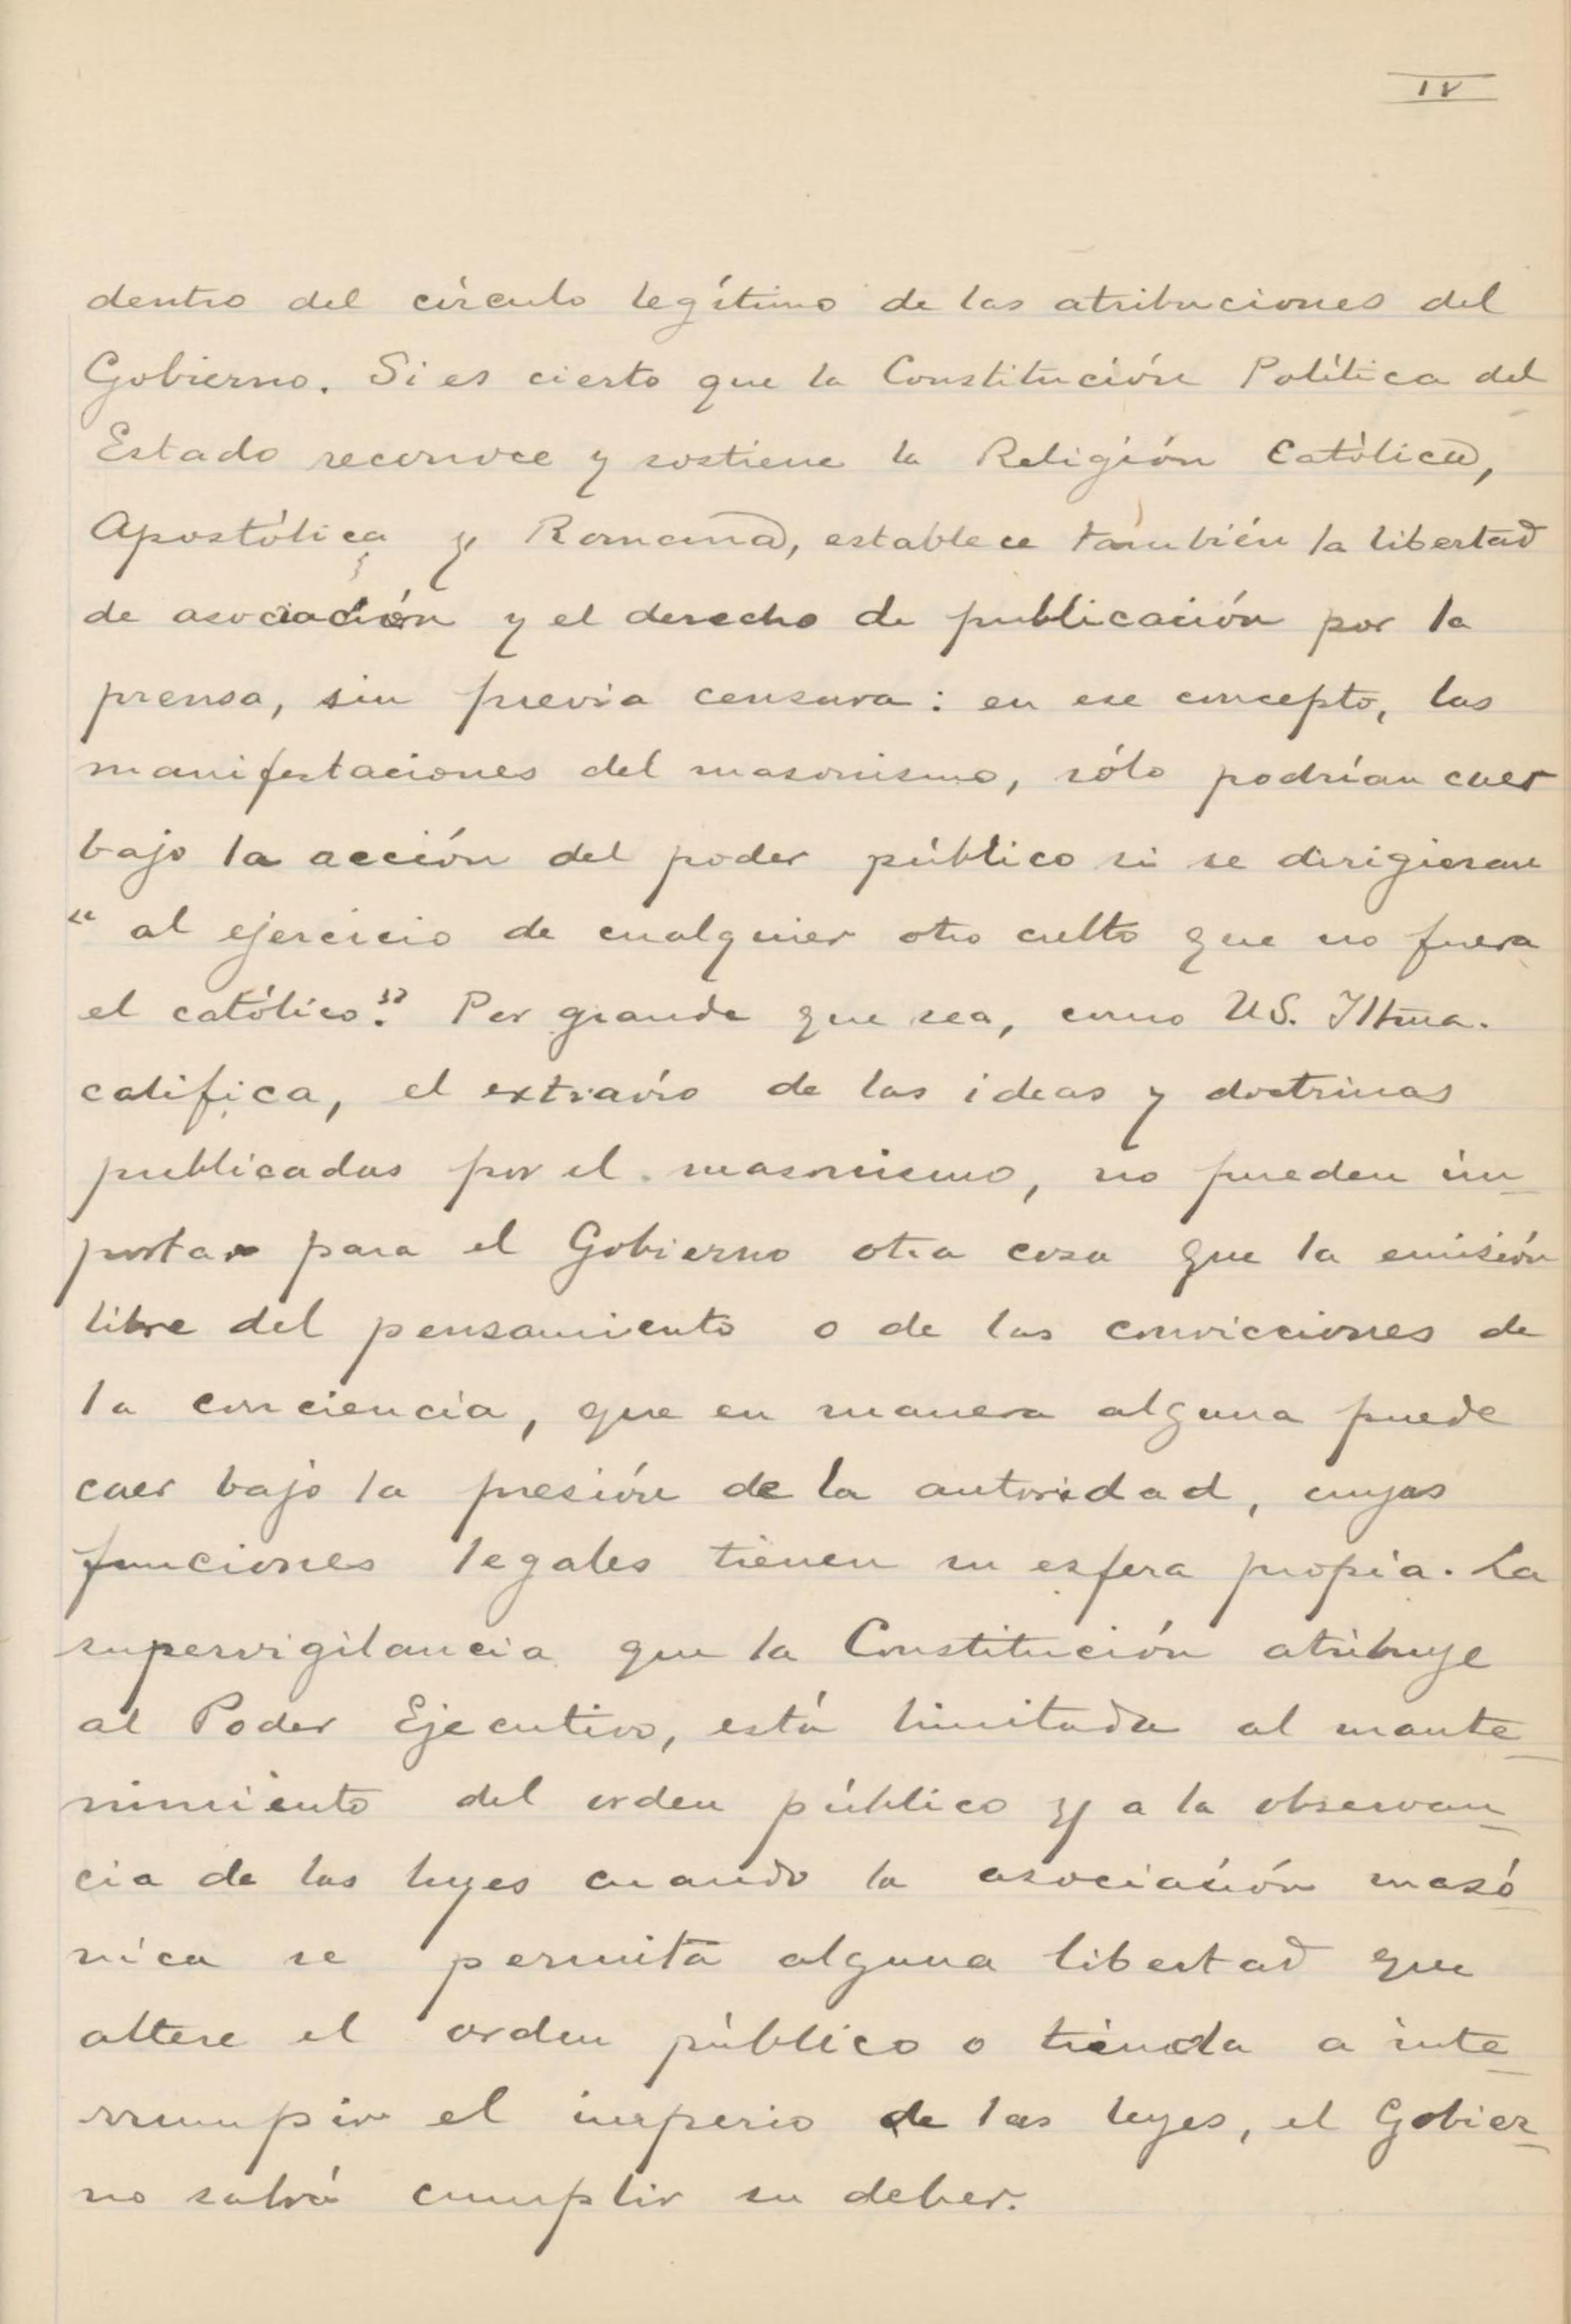 IV
dentro del círculo legítimo de las atribuciones del
Gobierno. Si es cierto que la Constitución Política del
Estado reconoce y sostiene la Religión Católica,
Apostólica y Romana, establece también la libertad
de asociación y el derecho de publicación por la
prensa, sin previa censura: en ese concepto, las
manifestaciones del masonismo, sólo podrían caer
bajo la acción del poder público si se dirigieran
"al ejercicio de cualquier otro culto que no fuera
el católico". Por grande que sea, como US. Iltma.
califica, el extravío de las ideas y doctrinas
publicadas por el masonismo, no pueden im-
portar para el Gobierno otra cosa que la emisión
libre del pensamiento o de las convicciones de
la conciencia, que en manera alguna puede
caer bajo la presión de la autoridad, cuyas
funciones legales tienen su esfera propia. La
supervigilancia que la Constitución atribuye
al Poder Ejecutivo, está limitada al mante-
nimiento del orden público y a la observan-
cia de las leyes cuando la asociación masó-
nica se permita alguna libertad que
altere el orden público o tienda a inte-
rrumpir el imperio de las leyes, el Gobier-
no sabrá cumplir su deber.